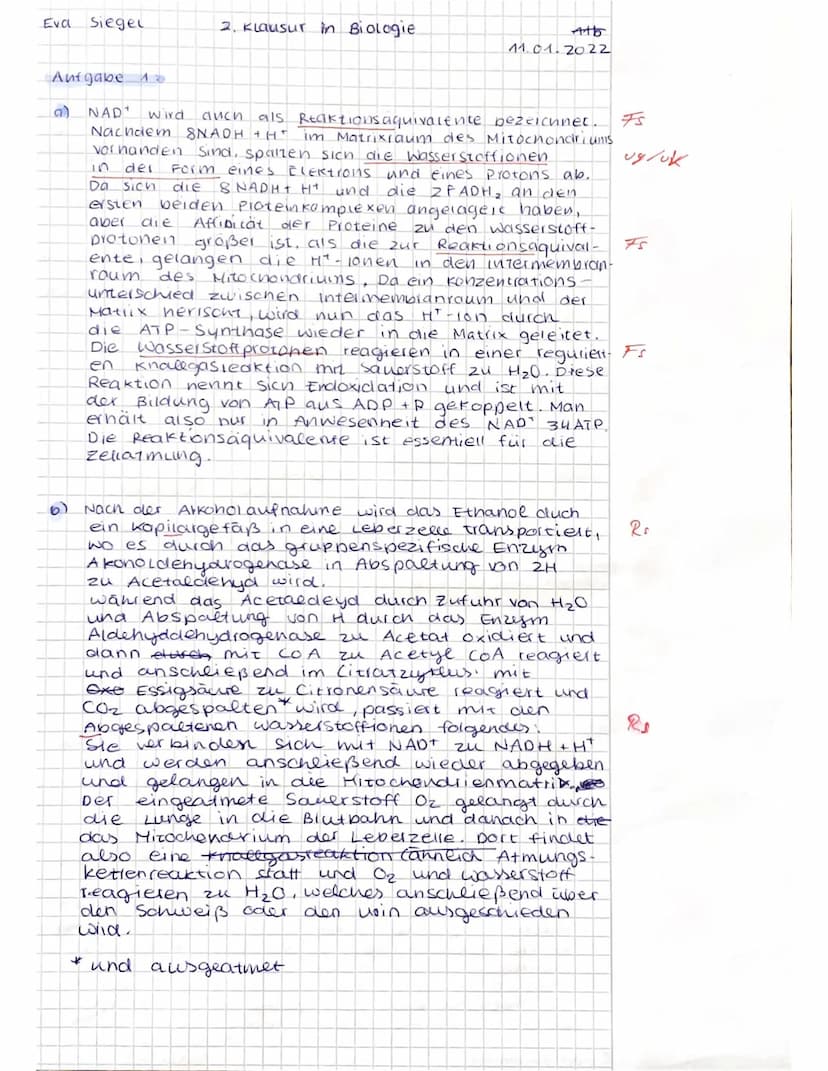 Eva Siegel 2. Klausur in Biologie
11.01.2022
Aufgabe 1:
a) NAD⁺ wird auch als Reaktionsäquivalente bezeichnet. Fs
Nachdem 8NADH + H⁺ im Matrixraum des Mitochondriums
vorhanden sind, spalten sich die Wasserstoffionen ug/uk
in der Form eines Elektrons und eines Protons ab.
Da sich die 8 NADH + H⁺ und die 2FADH₂ an den
ersten beiden Proteinkomplexen angelagert haben,
aber die Affinität der Proteine zu den Wasserstoff-
protonen größer ist, als die zur Reaktionsäquival- Fs
ente, gelangen die H⁺-Ionen in den Intermembran-
raum des Mitochondriums. Da ein Konzentrations-
unterschied zwischen Intermembranraum und der
Matrix herrscht, wird nun das H⁺-Ion durch
die ATP-Synthase wieder in die Matrix geleitet.
Die Wasserstoffprotonen reagieren in einer regulier- Fs
en Knallgasreaktion mit Sauerstoff zu H₂O. Diese
Reaktion nennt sich Endoxidation und ist mit
der Bildung von ATP aus ADP + P gekoppelt. Man
erhält also nur in Anwesenheit des NAD⁺ 34 ATP.
Die Reaktionsäquivalente ist essentiell für die
Zellatmung.
b) Nach der Alkoholaufnahme wird das Ethanol duch
ein Kapilargefäß in eine Leberzelle transportiert, Rs
wo es durch das gruppenspezifische Enzym
Akoholdehydrogenase in Abspaltung von 2H
zu Acetaldehyd wird.
Während das Acetaedeyd durch Zufuhr von H₂O
und Abspaltung von H durch das Enzym
Aldehyddehydrogenase zu Acetat oxidiert und
dann durch mit CoA zu Acetyl CoA reagiert
und anschließend im Citratzyklus mit
Oxo Essigsäure zu Citronensäure reagiert und
CO₂ abgespalten* wird, passiert mit den
Abgespaltenen Wasserstoffionen folgendes: Rs
Sie verbinden sich mit NAD⁺ zu NADH + H⁺
und werden anschließend wieder abgegeben
und gelangen in die Mitochondrienmatrix.
Der eingeatmete Sauerstoff O₂ gelangt durch
die Lunge in die Blutbahn und danach in die
das Mitochondrium der Leberzelle. Dort findet
also eine Knallgasreaktion (ähnlich Atmungs-
kettenreaktion statt und O₂ und Wasserstoff
reagieren zu H₂O, welches anschließend über
den Schweiß oder den Urin ausgeschieden
wird.
* und ausgeatmet